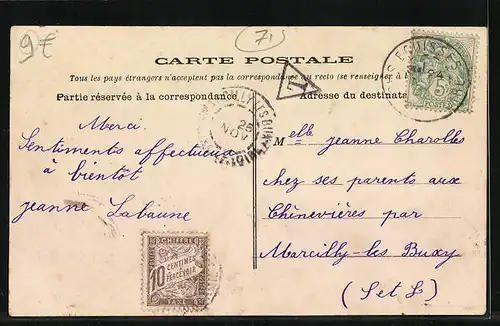 9€
71
CARTE POSTALE
Tous les pays étrangers n'acceptent pas la correspondance au recto (se renseigner à
Partie réservée à la correspondance
Adresse du destinata
T
25
NOV
24
5c
Merci.
Sentiments affectueux
à bientôt
jeanne Labaune
Melle jeanne Charolles
chez ses parents aux
Chènevières par
Marcilly-les Buxy
(S et L)
CHIFFRE
10 CENTIMES
A PERCEVOIR
TAXE